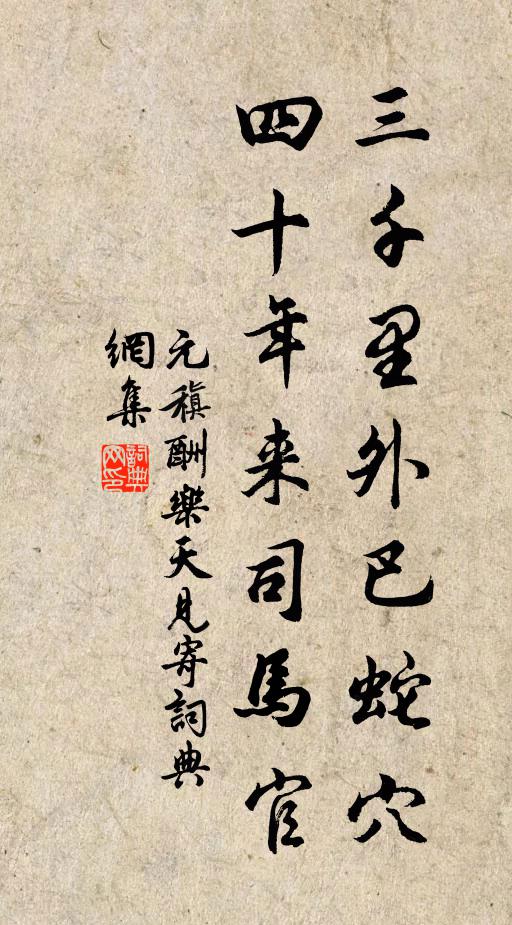 三千里外巴蛇穴
四十年来司馬官
元稹酬樂天見寄詞典
網集
詞典網印